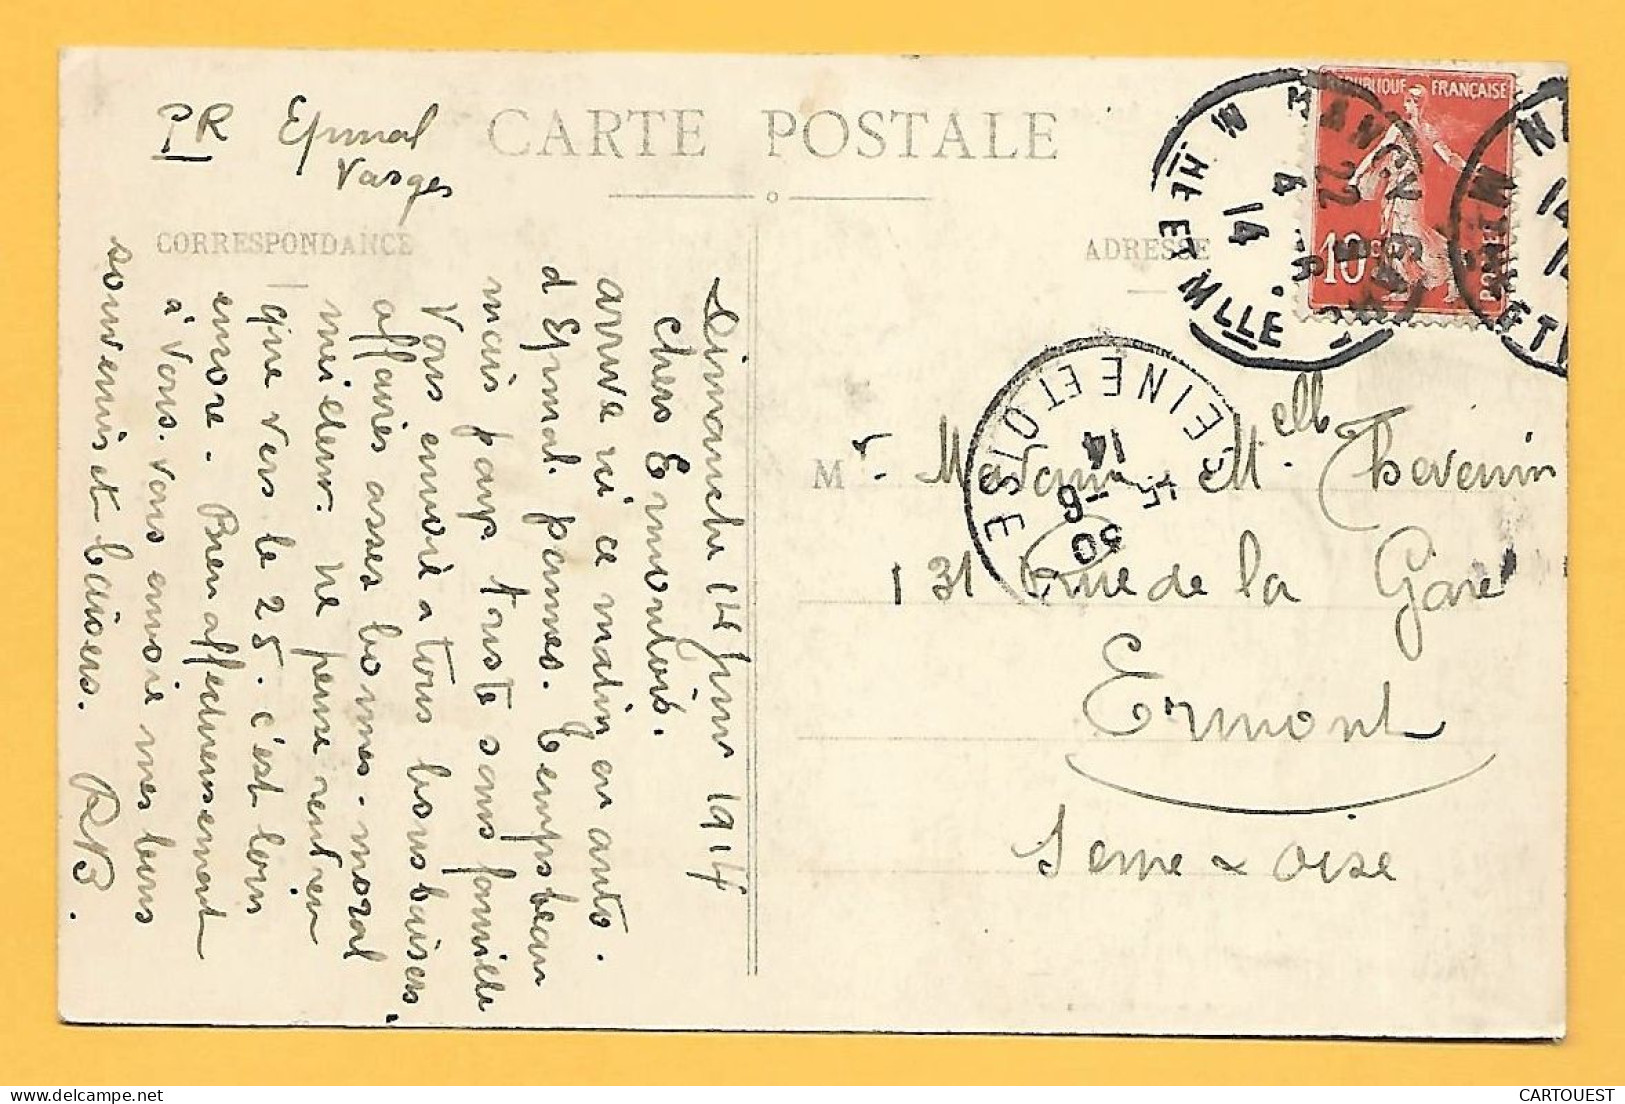 PR Epinal
Vosges
CARTE POSTALE
CORRESPONDANCE
ADRESSE
Dimanche 14 Juin 1914
Chers Ermontois.
arrive ici ce matin en auto.
d'Epinal. pannes. Temps beau
mais pays triste sans famille
Vous envoie a tous bons baisers,
affaires asses bonnes. moral
meilleur. ne pense rentrer
que vers le 25. c'est loin
encore. Bien affectueusement
à Vous. vous envoie mes bons
souvenirs et baisers. RB.
RÉPUBLIQUE FRANÇAISE
10c
POSTES
NANCY
22
14
MRE ET MLLE
SEINE ET OISE
30
15 -6
14
M Madame et Melle Thevenin
131 rue de la Gare
Ermont
Seine & Oise
CARTOUEST